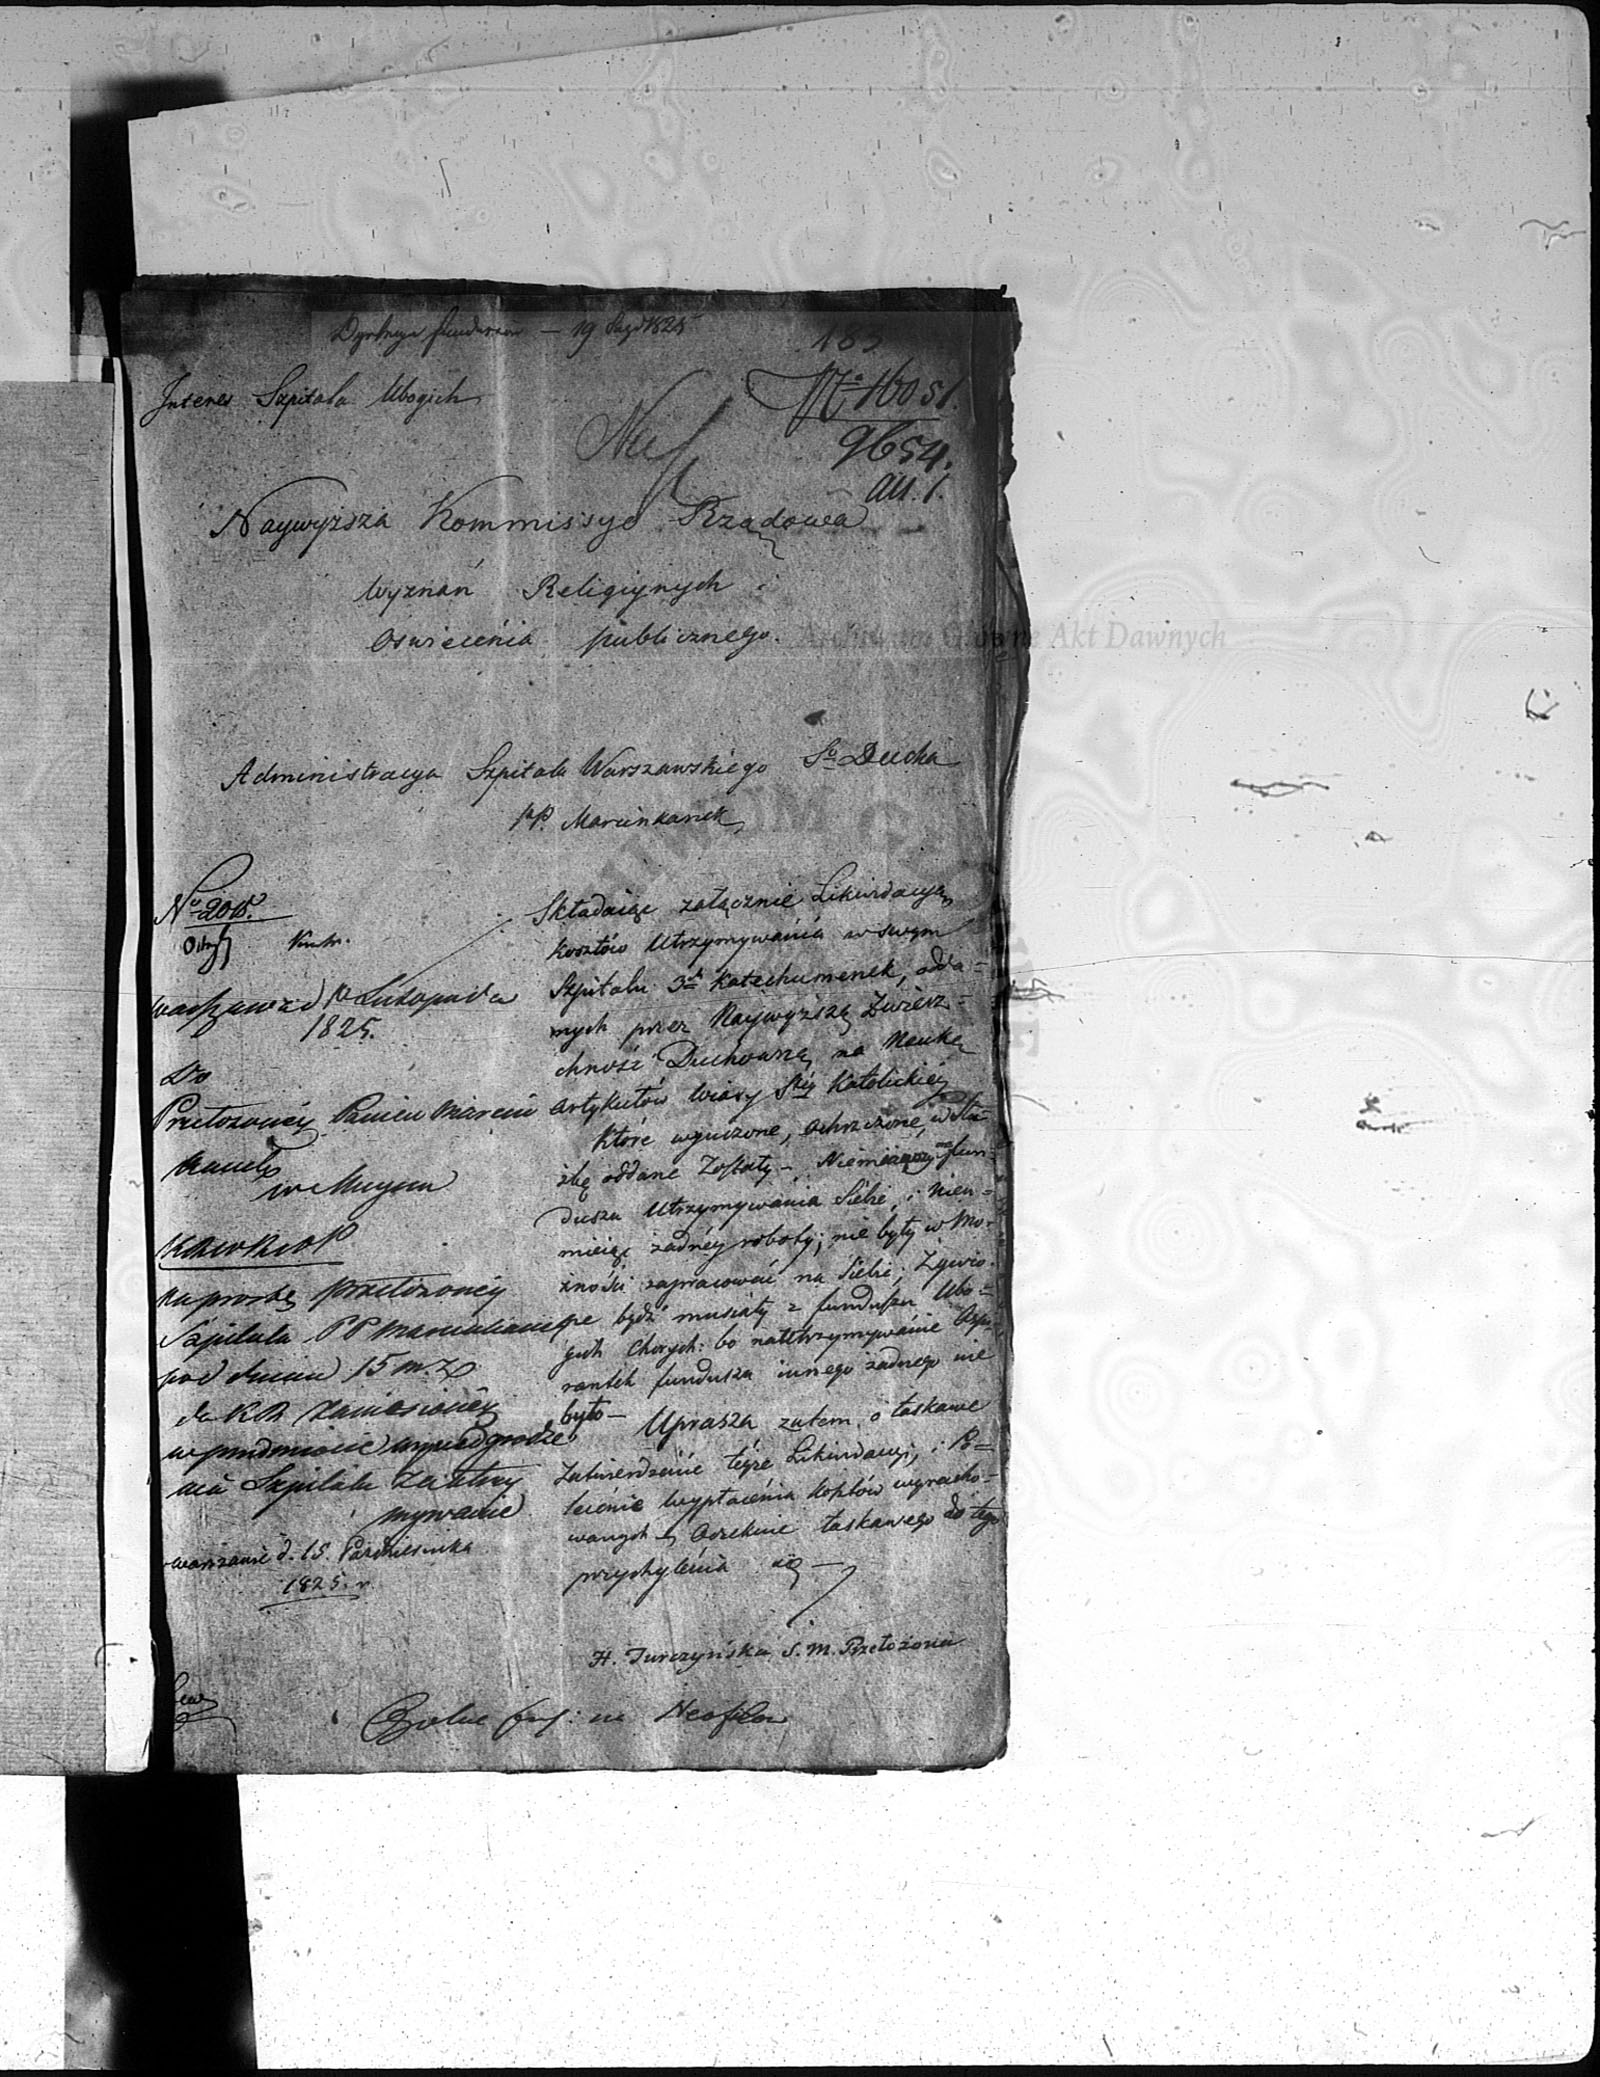 Dyrekcya funduszów — 19 Paźd 1825
183
Interes Szpitala Ubogich
No 16051.
9654.
an. 1.
Naywyższa Kommissyo Rządowa
Wyznań Religiynych i
Oświecenia publicznego.
Archiwum Główne Akt Dawnych
Administracya Szpitala Warszawskiego So Ducha
PP. Marcinkanek
No 2015.
Warszawa d Listopada
1825.
Do
Przełożoney Panien Marcin
kanek
w Mieyscu
KRWRiOP
Na prośbę Przełożoney
Szpitala PP Marcinkanek
pod dniem 15 m. z
do KR zaniesioney
w przedmiocie wynadgrodze
nia Szpitala za utrzy
mywanie
Składaiąc załącznie Likwidacyą
kosztów utrzymywania w swym
Szpitalu 3ch Katechumenek, odda=
nych przez Naywyższą Zwierz=
chność Duchowną na Naukę
Artykułów Wiary Stéy Katolickiéy
Które wyuczone, Ochrzczone, w słu=
żbę oddane Zostały — Niemaiąc fun=
duszu Utrzymywania Siebie, i nieu=
mieiąc żadnéy roboty; nie były w Mo=
żności zapracować na Siebie; Żywio=
ne bydź musiały z funduszu Ubo=
gich Chorych: bo na utrzymywanie Aspi=
rantek funduszu innego żadnego nie
było — Uprasza zatem o łaskawe
Zatwierdzenie téyże Likwidacyi, i Po=
lecenie wypłacenia Kosztów wyracho=
wanych — Oczekuie łaskawego do tego
przychylenia się —
Warszawie d. 15. Października
1825. r
H. Turczyńska S. M. Przełożona